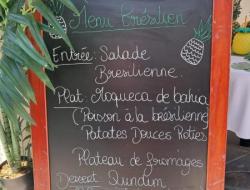 Menu Brésilien
Entrée: Salade
Bresilienne.
Plat: Moqueca de bahia
(Poisson à la brésilienne
Patates Douces Roties
Plateau de fromages
Dessert Qundim